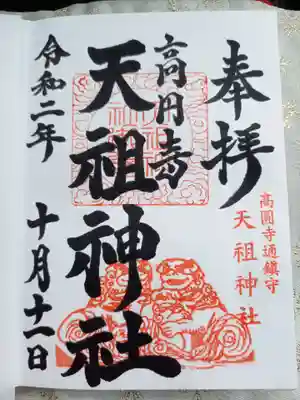 奉拝
高圓寺通鎮守
天祖神社
高円寺
天祖神社
令和二年
十月十一日